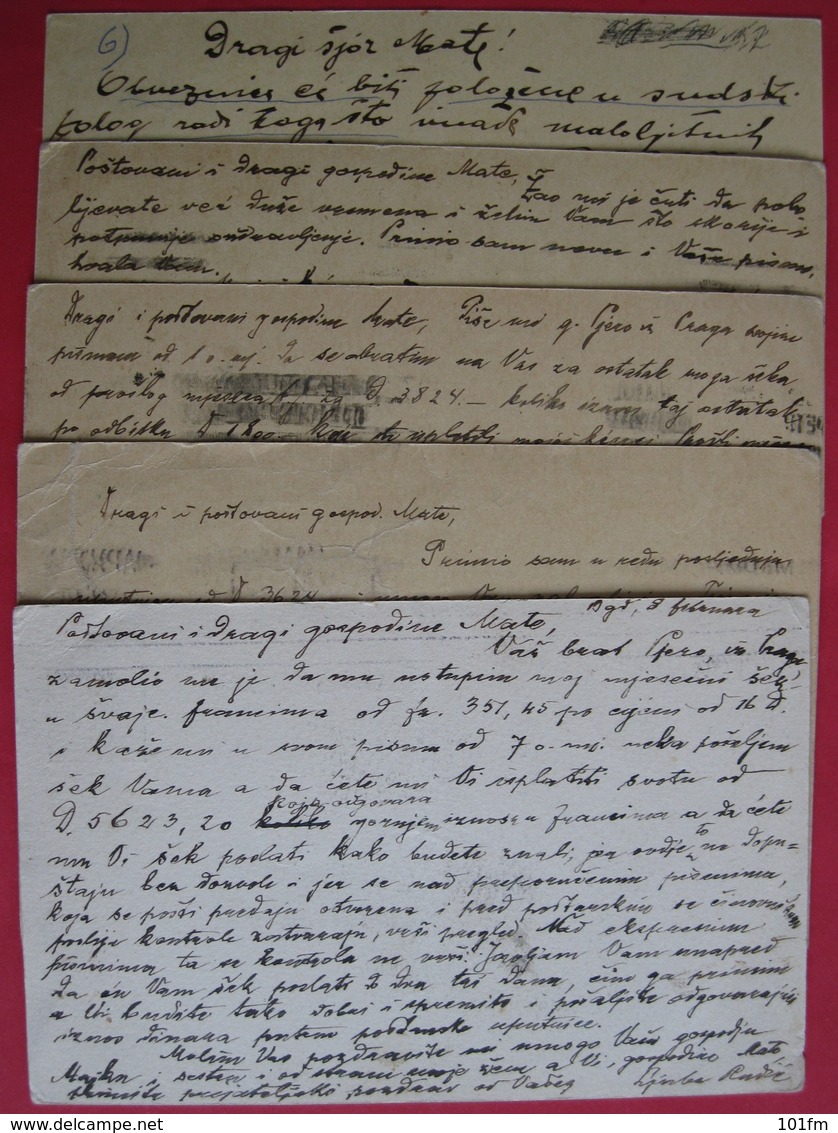 6)
Dragi šjor Mate!
Obveznice će biti položene u sudski
polog radi toga što imade maloljetnih
Poštovani i dragi gospodine Mate,
Žao mi je čuti da pobo-
lijevate već duže vremena i želim Vam što skorije i
potpunije ozdravljenje. Primio sam novac i Vaše pismo,
hvala Vam.
Dragi i poštovani gospodine Mate, Piše mi g. Pjero iz Praga svojim
pismom od 1 o. mj. da se obratim na Vas za ostatak moga čeka,
od prošlog mjeseca, za D. 3824.- koliko iznosi taj ostatak
po odbitku D 1800.-
Dragi i poštovani gospod. Mate,
Primio sam u redu posljednju
od D 3624
Bgd, 8 februara
Poštovani i dragi gospodine Mate,
Vaš brat Pjero, iz Praga
zamolio me je da mu ustupim moj mjesečni šek
u švajc. francima od fr. 351,45 po cijeni od 16 D.
i kaže mi u svom pismu od 7 o. mj. neka pošaljem
šek Vama a da ćete mi Vi isplatiti svotu od
koja odgovara
D. 5623,20 koliko gornjem iznosu u francima a da ćete
mu Vi šek poslati kako budete znali, jer ovdje to ne dopu-
štaju bez dozvole i jer se nad preporučenim pismima,
koja se pošti predaju otvorena i pred poštarskim se činovnikom
poslije kontrole zatvaraju, vrši pregled. Nad ekspresnim
pismima ta se kontrola ne vrši. Javljam Vam unapred
da ću Vam šek poslati za dva tri dana, čim ga primim
a Vi budite tako dobri i spremite i pošaljite odgovarajući
iznos dinara putem poštanske uputnice.
Molim Vas pozdravite mi mnogo Vašu gospodju
Majku i sestru i od strane moje žene a Vi, gospodine Mate
primite prijateljski pozdrav od Vašeg
101fm